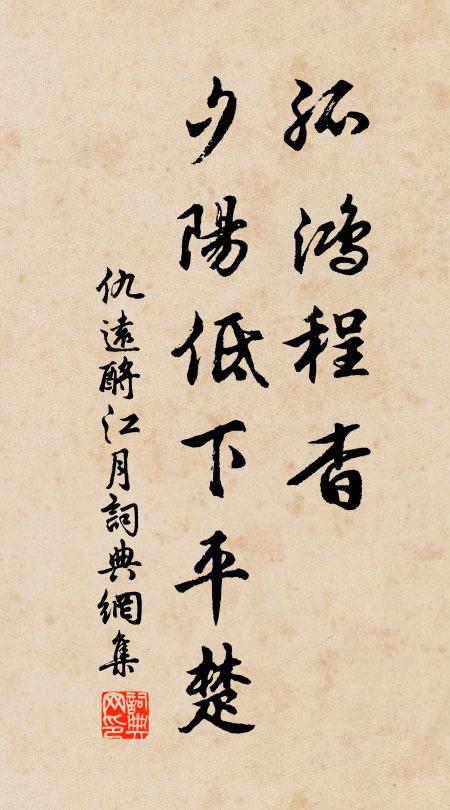 孤鸿程杳
夕陽低下平楚
仇遠酹江月詞典網集
詞典网印